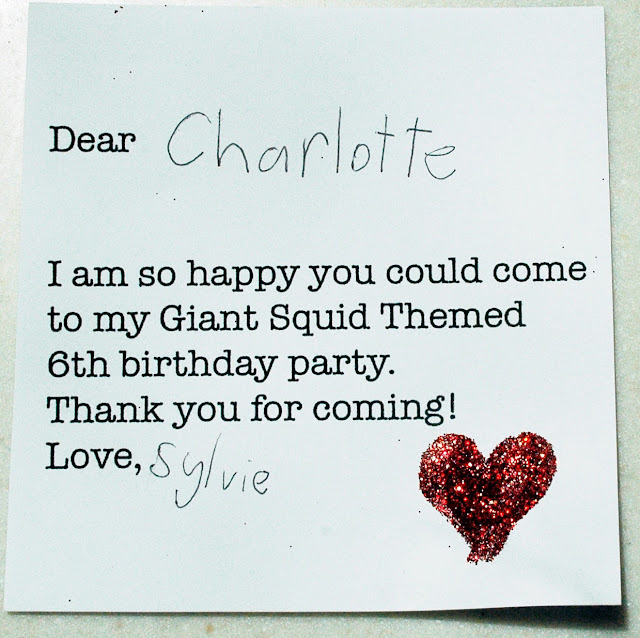 Dear Charlotte
I am so happy you could come
to my Giant Squid Themed
6th birthday party.
Thank you for coming!
Love, Sylvie